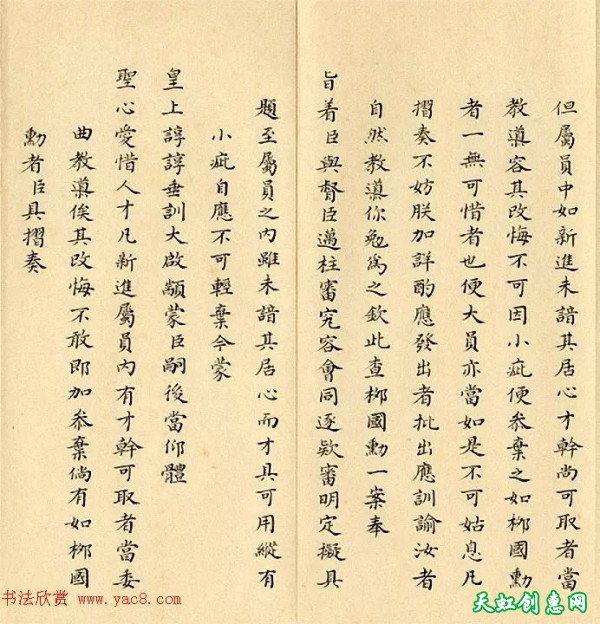 但屬員中如新進未諳其居心才幹尚可取者當
教導容其改悔不可因小疵便叅棄之如柳國勳
者一無可惜者也便大員亦當如是不可姑息凡
摺奏不妨朕加詳酌應發出者批出應訓諭汝者
自然教導你勉為之欽此查柳國勳一案奉
旨着臣與督臣邁柱審究容會同逐欵審明定擬具
題至屬員之內雖未諳其居心而才具可用縱有
小疵自應不可輕棄今蒙
皇上諄諄垂訓大啟顓蒙臣嗣後當仰體
聖心愛惜人才凡新進屬員內有才幹可取者當委
曲教導俟其改悔不敢即加叅棄倘有如柳國
勳者臣具摺奏
书法欣赏 www.yac8.com
天虹创惠网